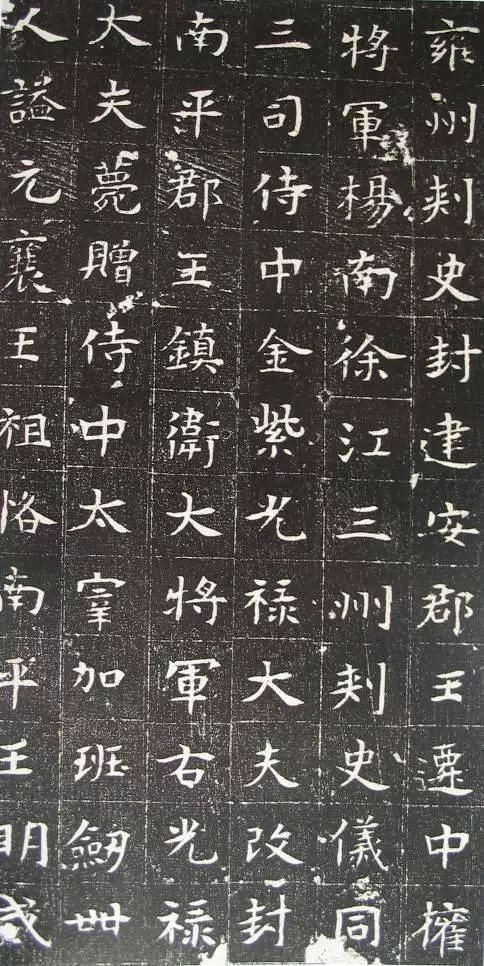 雍州刾史封建安郡王遷中權
將軍楊南徐江三州刾史儀同
三司侍中金紫光禄大夫改封
南平郡王鎮衛大將軍右光禄
大夫薨贈侍中太宰加班劔丗
人謚元襄王祖恪南平王明威